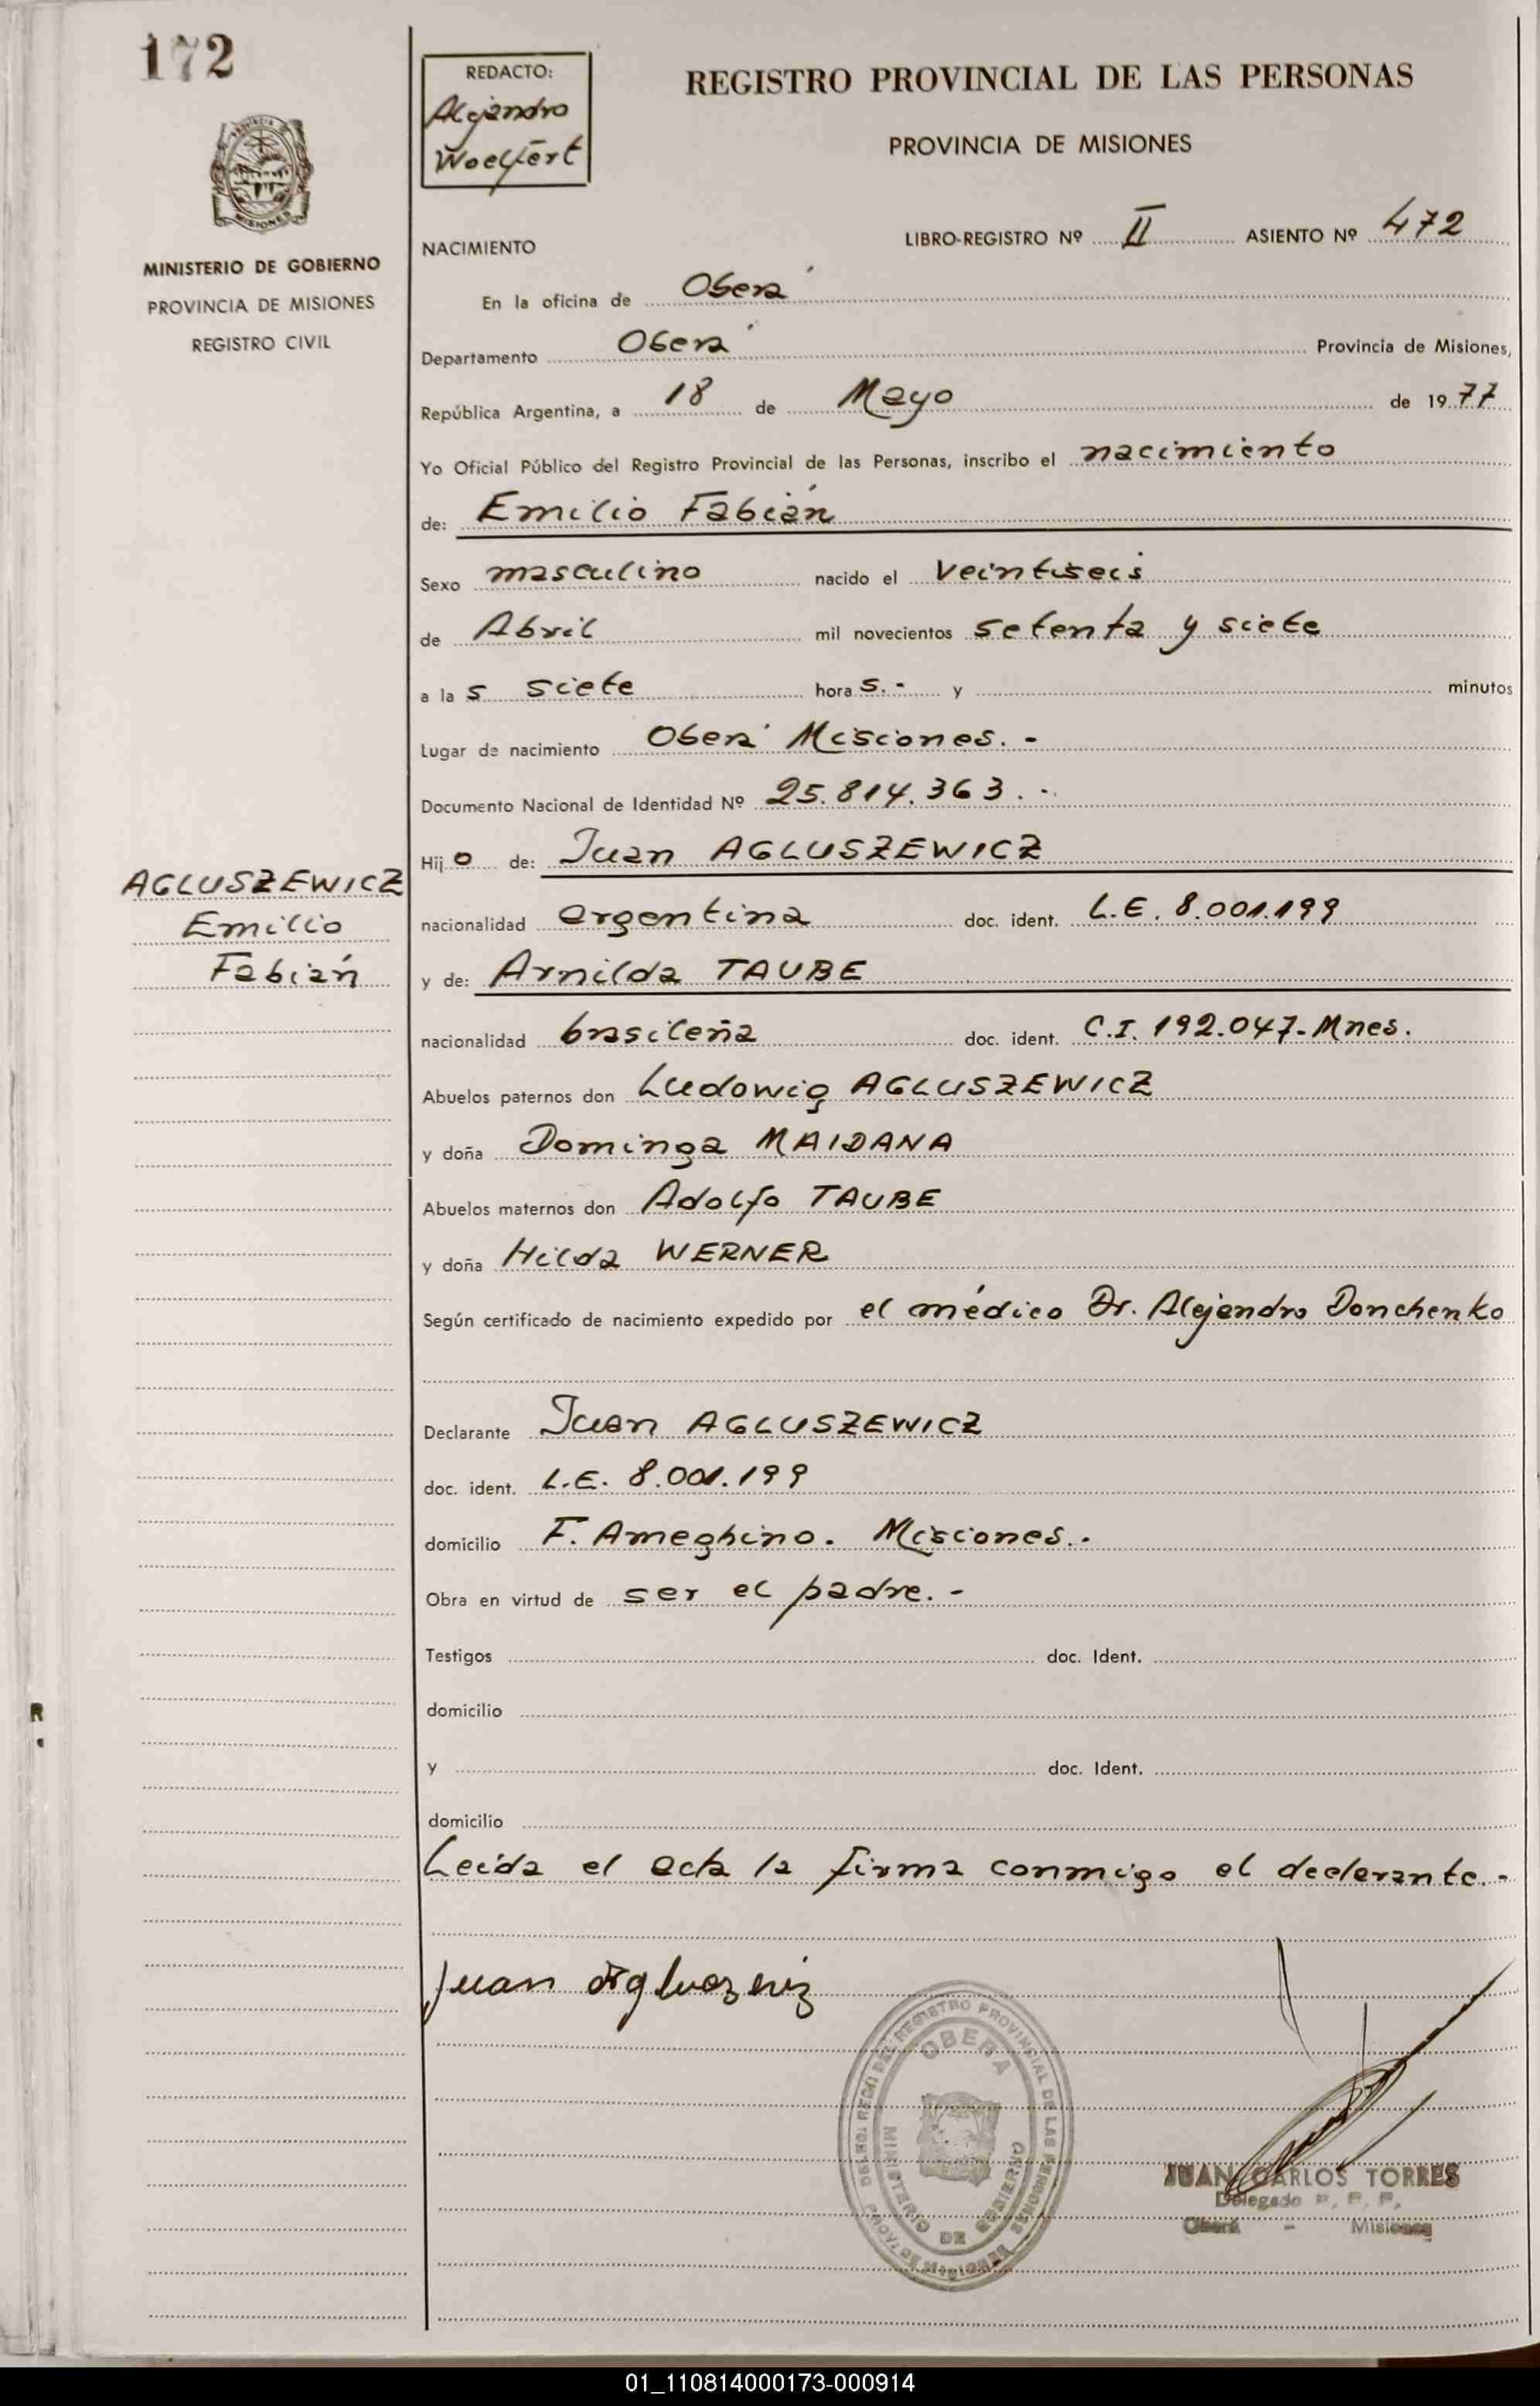 172
MINISTERIO DE GOBIERNO
PROVINCIA DE MISIONES
REGISTRO CIVIL
AGLUSZEWICZ
Emilio
Fabián
REDACTO:
Alejandro
Woelfert
REGISTRO PROVINCIAL DE LAS PERSONAS
PROVINCIA DE MISIONES
LIBRO-REGISTRO Nº II ASIENTO Nº 472
NACIMIENTO
En la oficina de Oberá
Departamento Oberá Provincia de Misiones,
República Argentina, a 18 de Mayo de 1977
Yo Oficial Público del Registro Provincial de las Personas, inscribo el nacimiento
de: Emilio Fabián
Sexo masculino nacido el veintiseis
de Abril mil novecientos setenta y siete
a la s siete hora s.- y minutos
Lugar de nacimiento Oberá Misiones.-
Documento Nacional de Identidad Nº 25.814.363.-
Hij o de: Juan AGLUSZEWICZ
nacionalidad argentina doc. ident. L.E. 8.001.199
y de: Arnilda TAUBE
nacionalidad brasileña doc. ident. C.I. 192.047-Mnes.
Abuelos paternos don Ludowig AGLUSZEWICZ
y doña Dominga MAIDANA
Abuelos maternos don Adolfo TAUBE
y doña Hilda WERNER
Según certificado de nacimiento expedido por el médico Dr. Alejandro Donchenko
Declarante Juan AGLUSZEWICZ
doc. ident. L.E. 8.001.199
domicilio F. Ameghino. Misiones.-
Obra en virtud de ser el padre.-
Testigos doc. Ident.
domicilio
y doc. Ident.
domicilio
Leída el acta la firma conmigo el declarante.-
Juan
OBERA
MINISTERIO DE GOBIERNO
REGISTRO PROVINCIAL DE LAS PERSONAS
JUAN CARLOS TORRES
Delegado R. P. P.
Oberá - Misiones
01_110814000173-000914